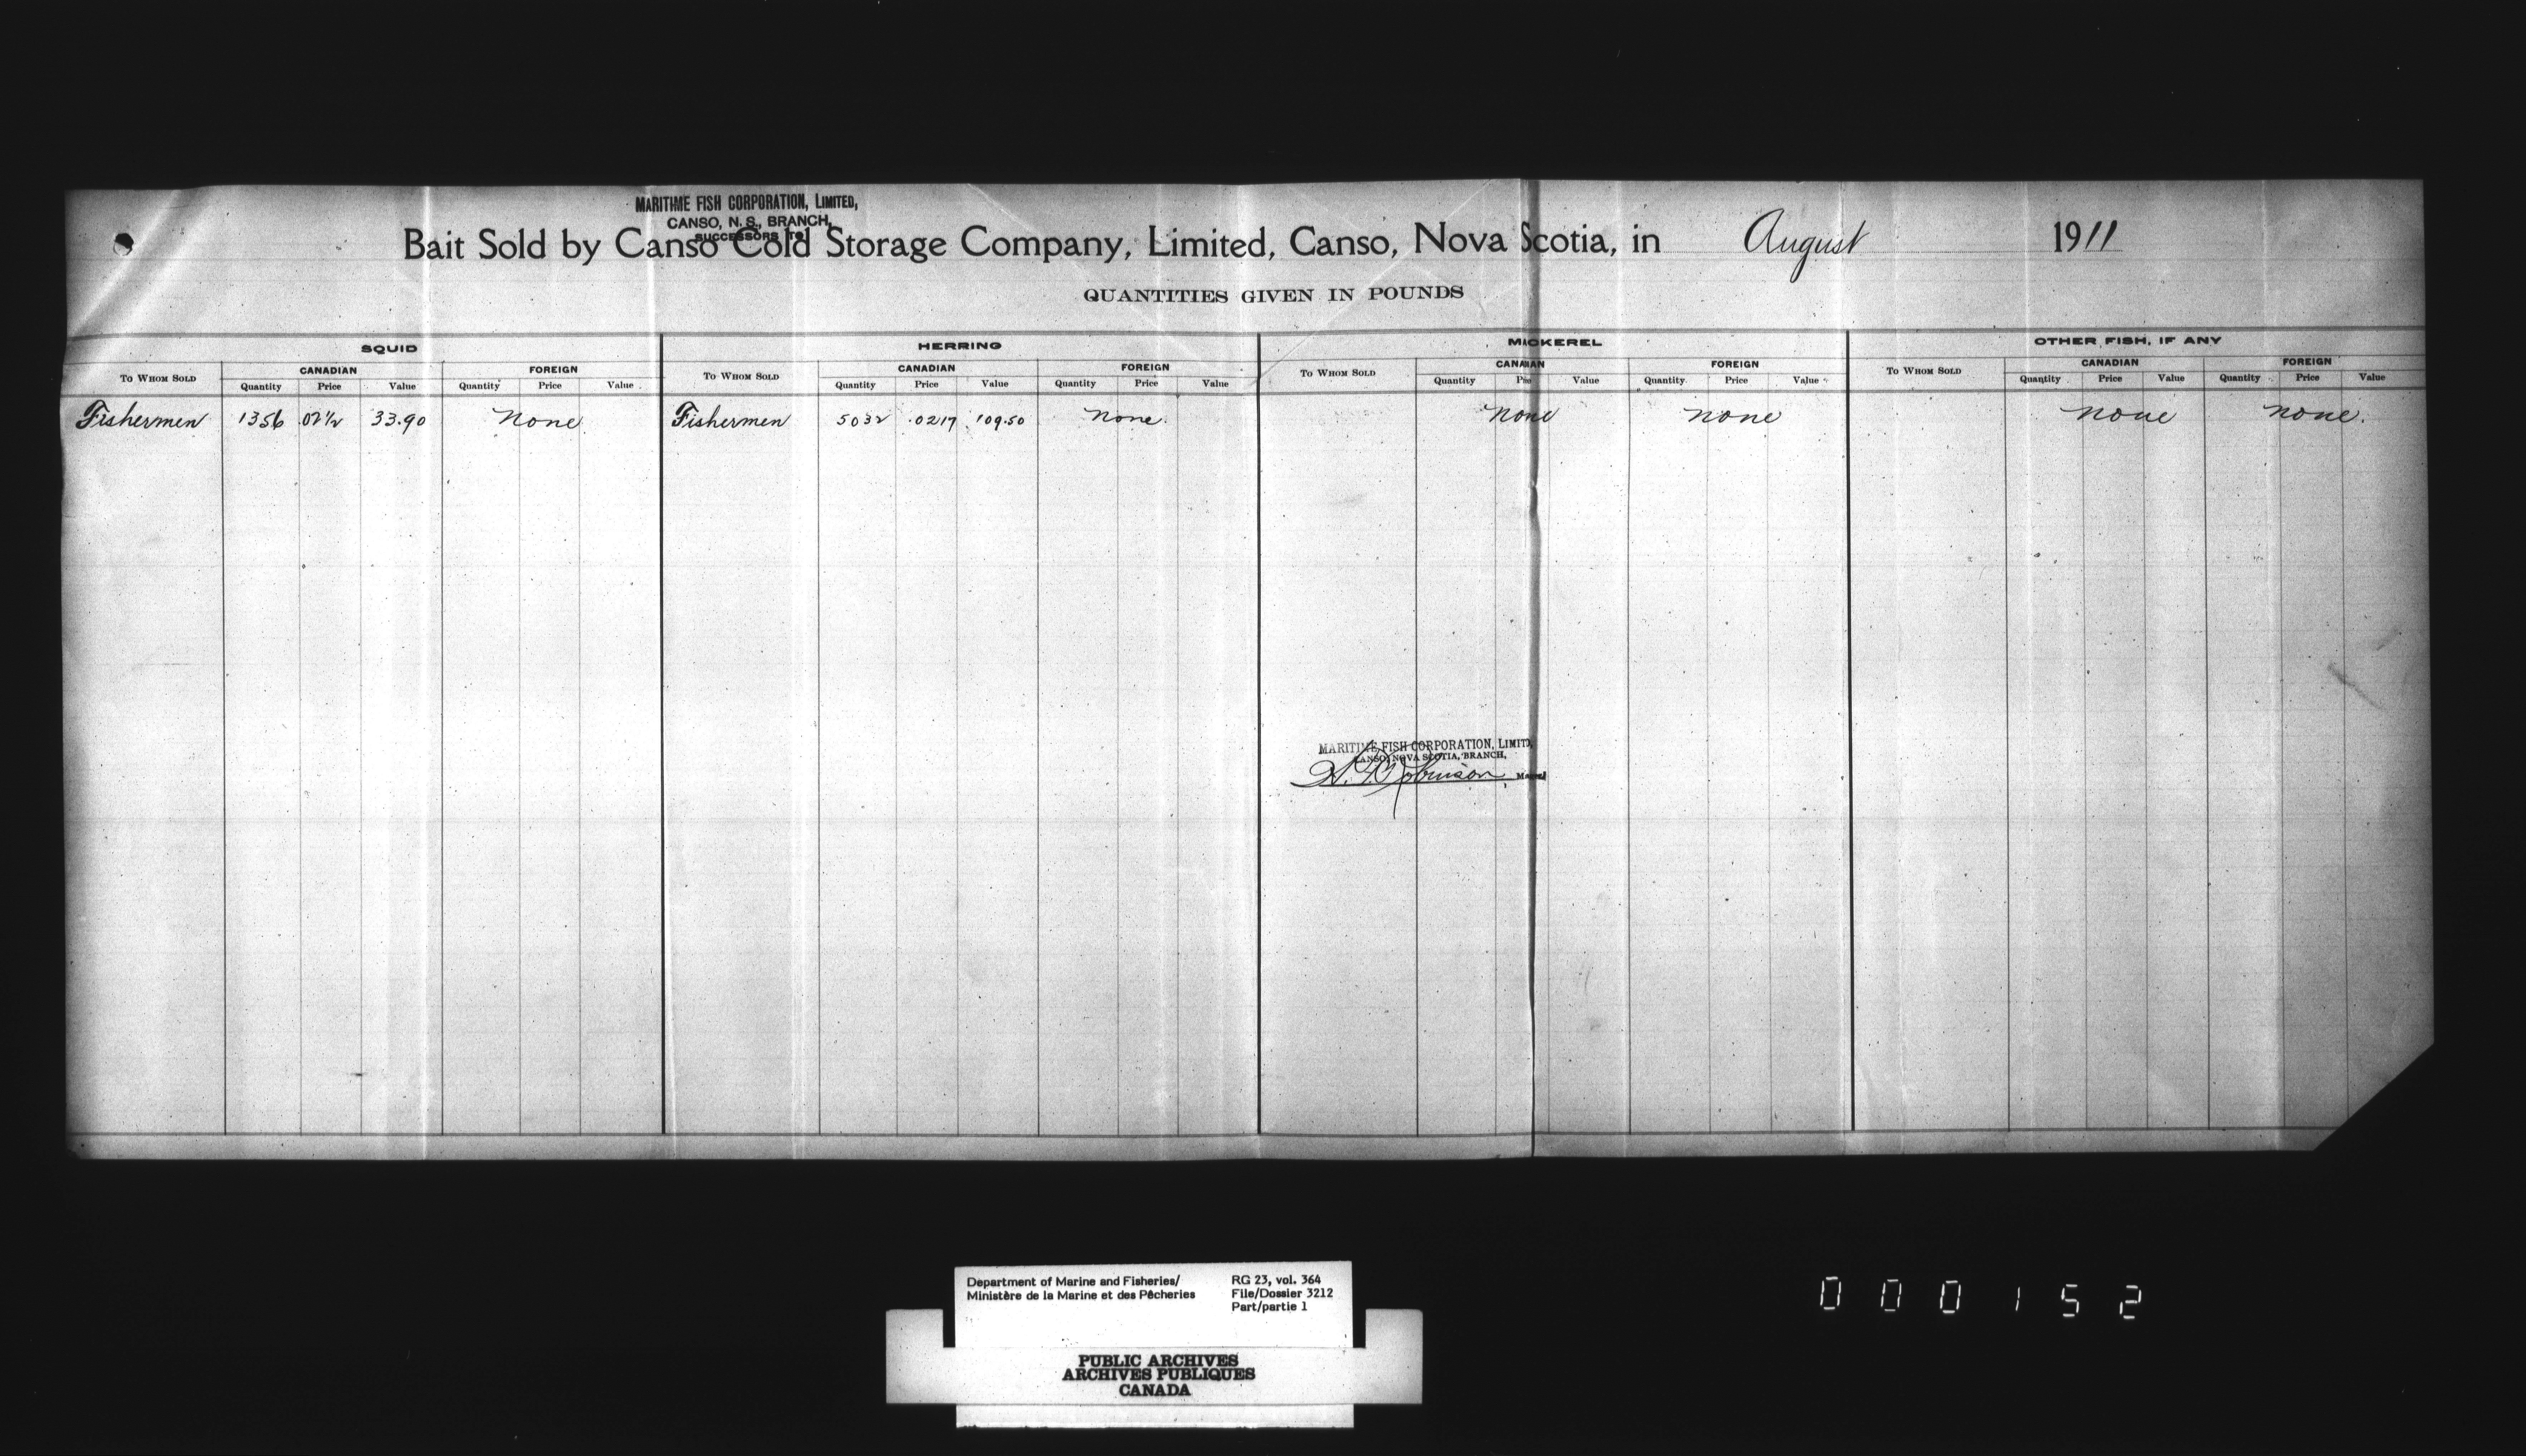 MARITIME FISH CORPORATION, LIMITED,
CANSO, N. S., BRANCH,
SUCCESSORS TO
Bait Sold by Canso Cold Storage Company, Limited, Canso, Nova Scotia, in August 1911
QUANTITIES GIVEN IN POUNDS
SQUID HERRING MACKEREL OTHER FISH, IF ANY
TO WHOM SOLD CANADIAN FOREIGN TO WHOM SOLD CANADIAN FOREIGN TO WHOM SOLD CANADIAN FOREIGN TO WHOM SOLD CANADIAN FOREIGN
Quantity Price Value Quantity Price Value Quantity Price Value Quantity Price Value Quantity Price Value Quantity Price Value Quantity Price Value Quantity Price Value
Fishermen 1356 .02½ 33.90 None Fishermen 5032 .0217 109.50 None. None None None None.
MARITIME FISH CORPORATION, LIMITED,
CANSO, NOVA SCOTIA, BRANCH,
Robinson
Department of Marine and Fisheries/ RG 23, vol. 364
Ministère de la Marine et des Pêcheries File/Dossier 3212
Part/partie 1
PUBLIC ARCHIVES
ARCHIVES PUBLIQUES
CANADA
000152